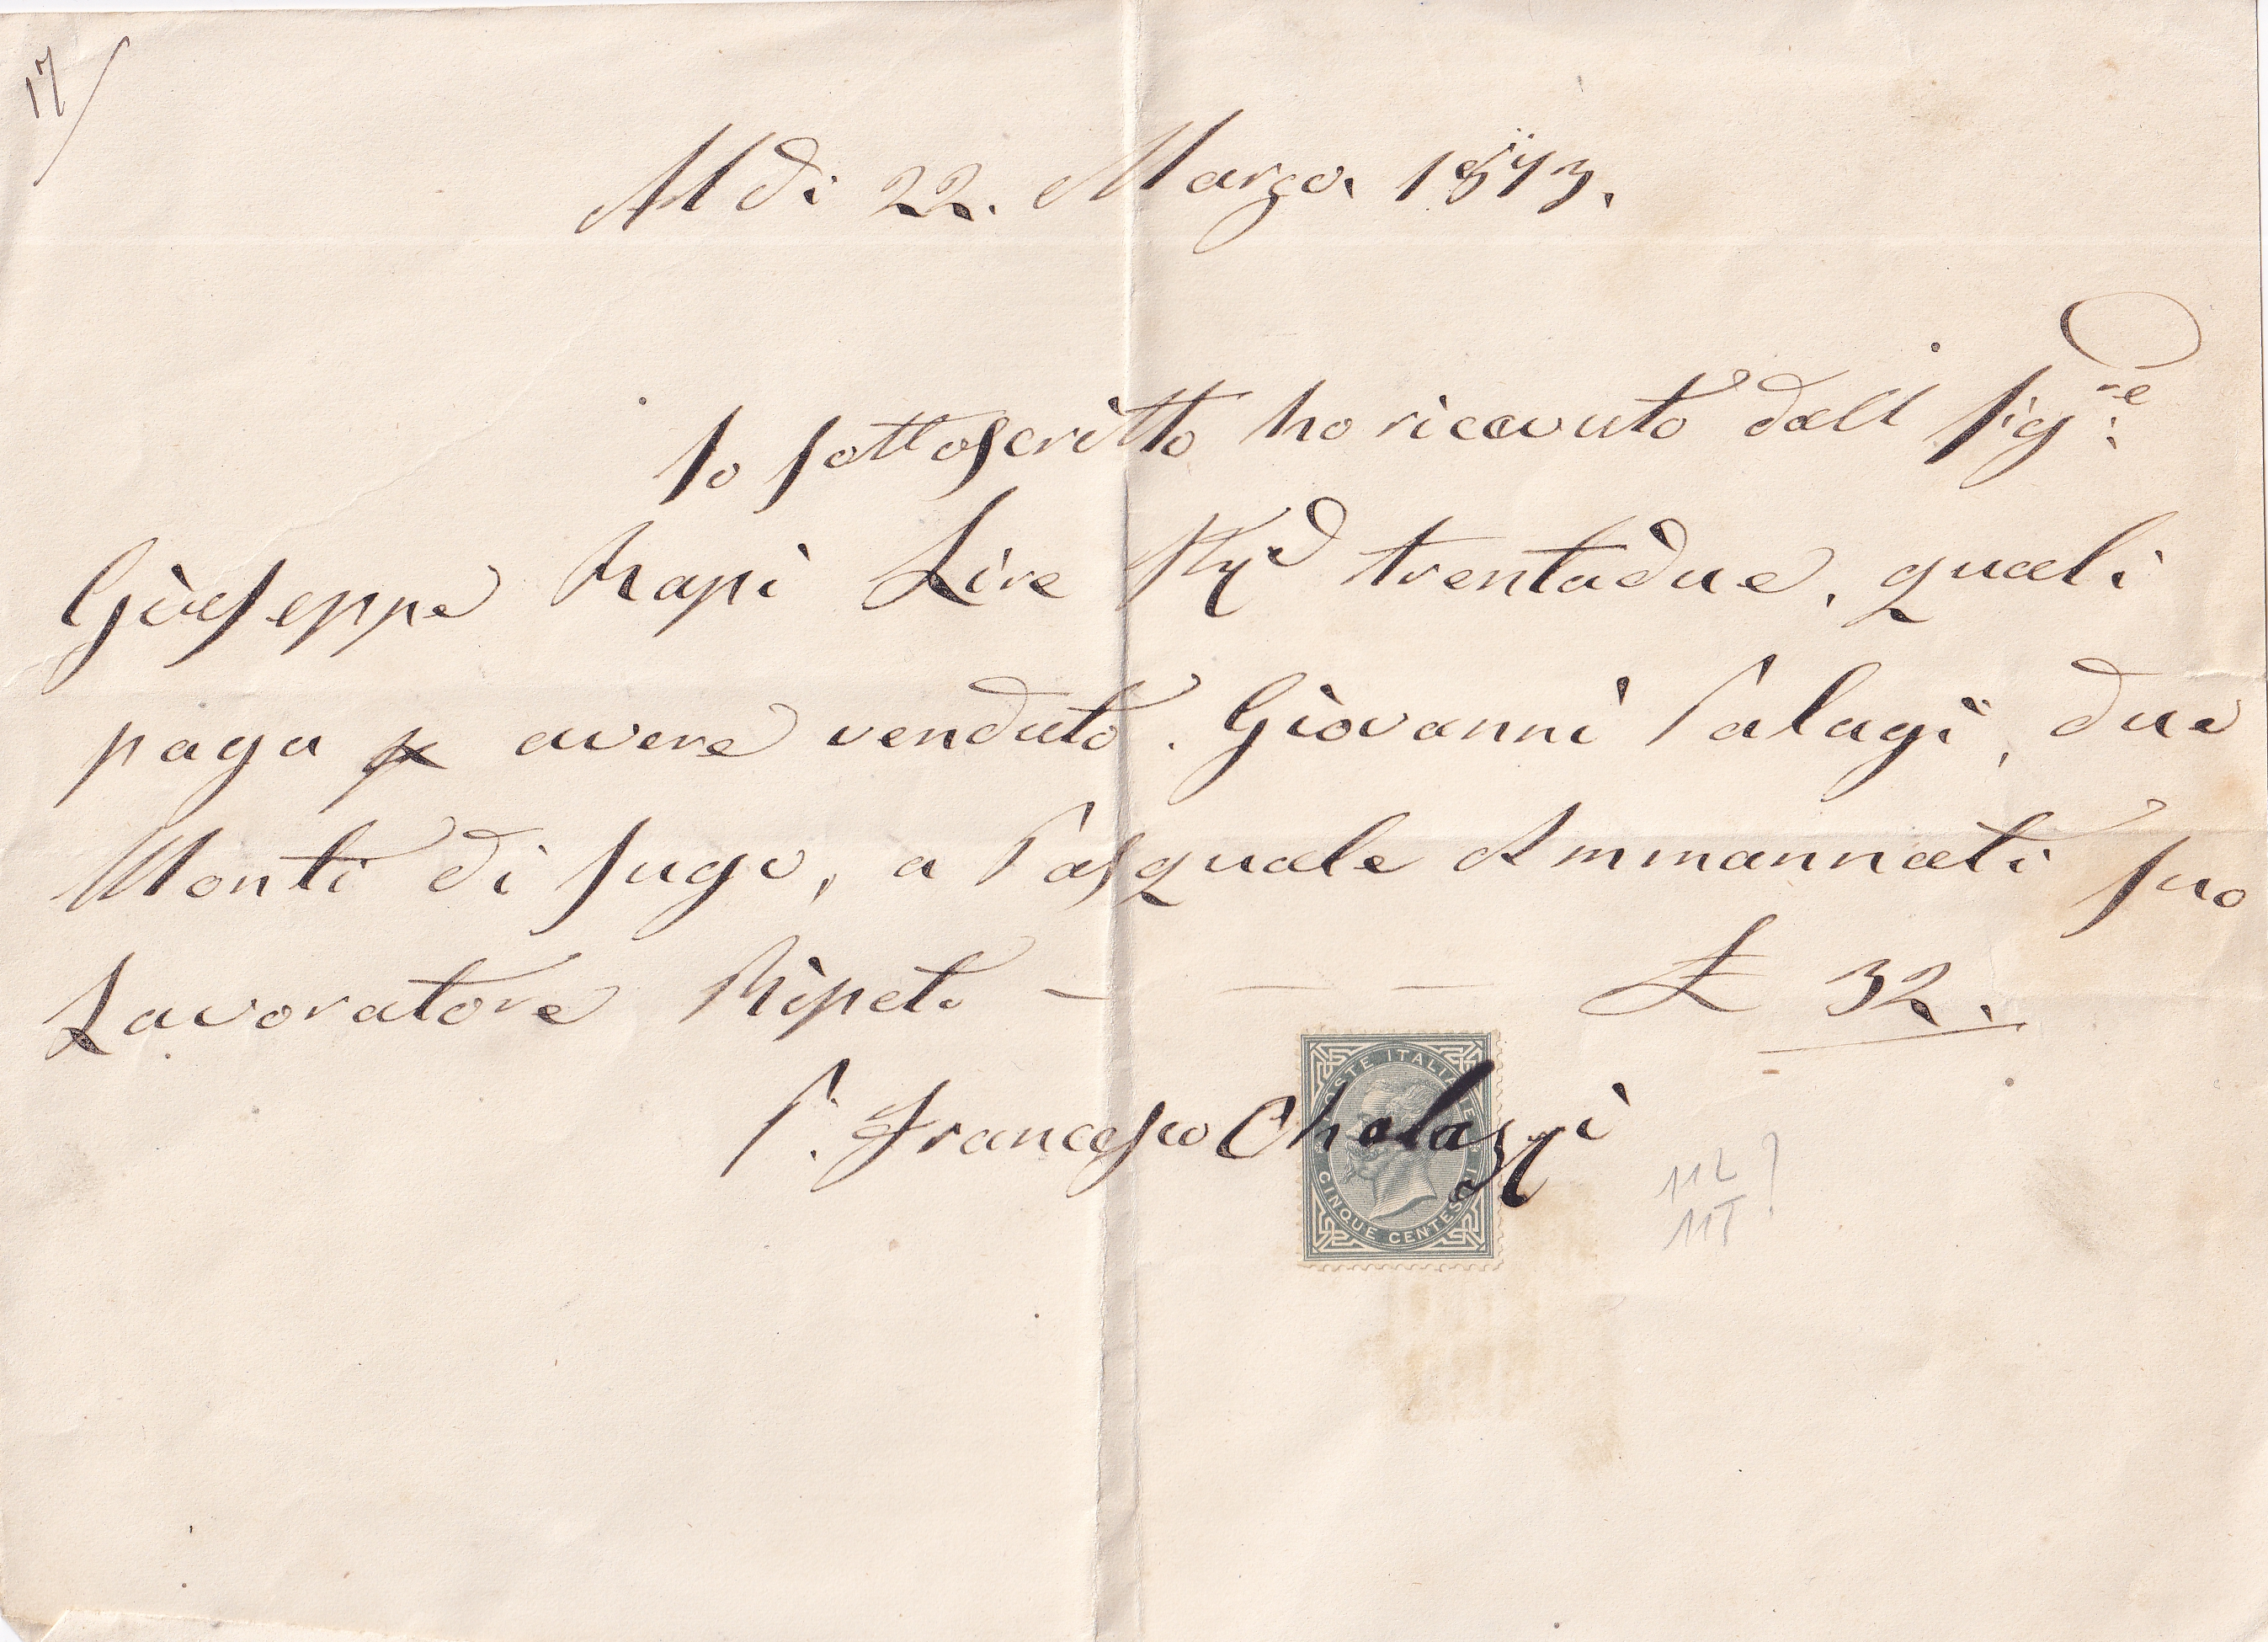 17/
Al di 22. Marzo. 1873.
Io sottoscritto ho ricevuto dall Sig.re
Giuseppe Lire trentadue, quali
paga p avere venduto. Giovanni Palagi, due
Monti di sugo, a Pasquale Ammannati suo
Lavoratore Ripeto - - - £ 32.
P. Francesco Cholazzi
POSTE ITALIANE
CINQUE CENTESIMI
11L
11T ?